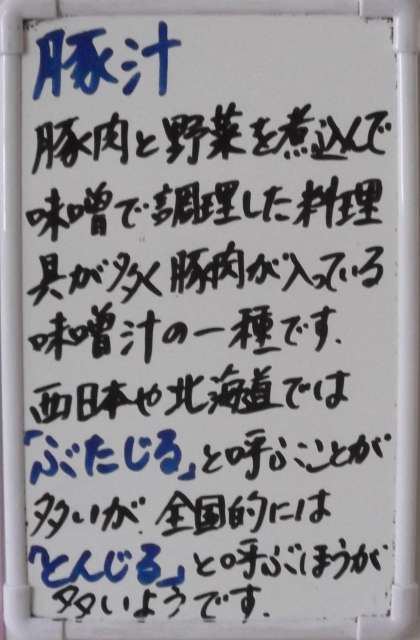 豚汁
豚肉と野菜を煮込んで
味噌で調理した料理
具が多く豚肉が入っている
味噌汁の一種です.
西日本や北海道では
「ぶたじる」と呼ぶことが
多いが、全国的には
「とんじる」と呼ぶほうが
多いようです.